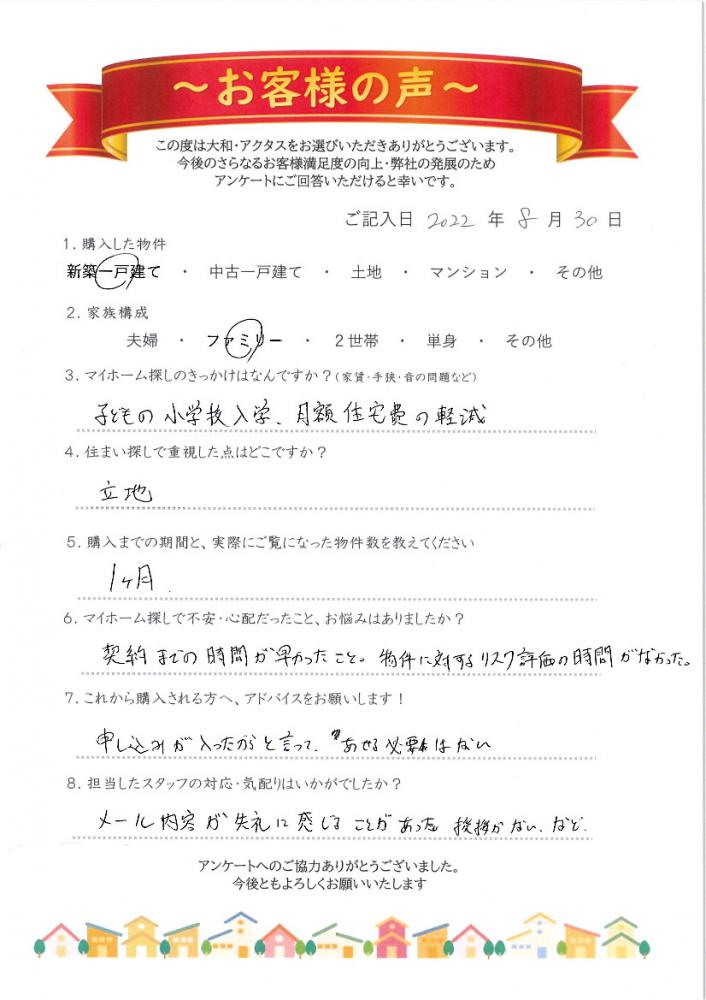 ～お客様の声～
この度は大和・アクタスをお選びいただきありがとうございます。
今後のさらなるお客様満足度の向上・弊社の発展のため
アンケートにご回答いただけると幸いです。
ご記入日 2022 年 8 月 30 日
1. 購入した物件
新築一戸建て ・ 中古一戸建て ・ 土地 ・ マンション ・ その他
2. 家族構成
夫婦 ・ ファミリー ・ 2世帯 ・ 単身 ・ その他
3. マイホーム探しのきっかけはなんですか？（家賃・手狭・音の問題など）
子どもの小学校入学、月額住宅費の軽減
4. 住まい探しで重視した点はどこですか？
立地
5. 購入までの期間と、実際にご覧になった物件数を教えてください
1ヶ月.
6. マイホーム探しで不安・心配だったこと、お悩みはありましたか？
契約までの時間が早かったこと。物件に対するリスク評価の時間がなかった。
7. これから購入される方へ、アドバイスをお願いします！
申し込みが入ったからと言って、あせる必要はない
8. 担当したスタッフの対応・気配りはいかがでしたか？
メール内容が失礼に感じることがあった 挨拶がない、など.
アンケートへのご協力ありがとうございました。
今後ともよろしくお願いいたします